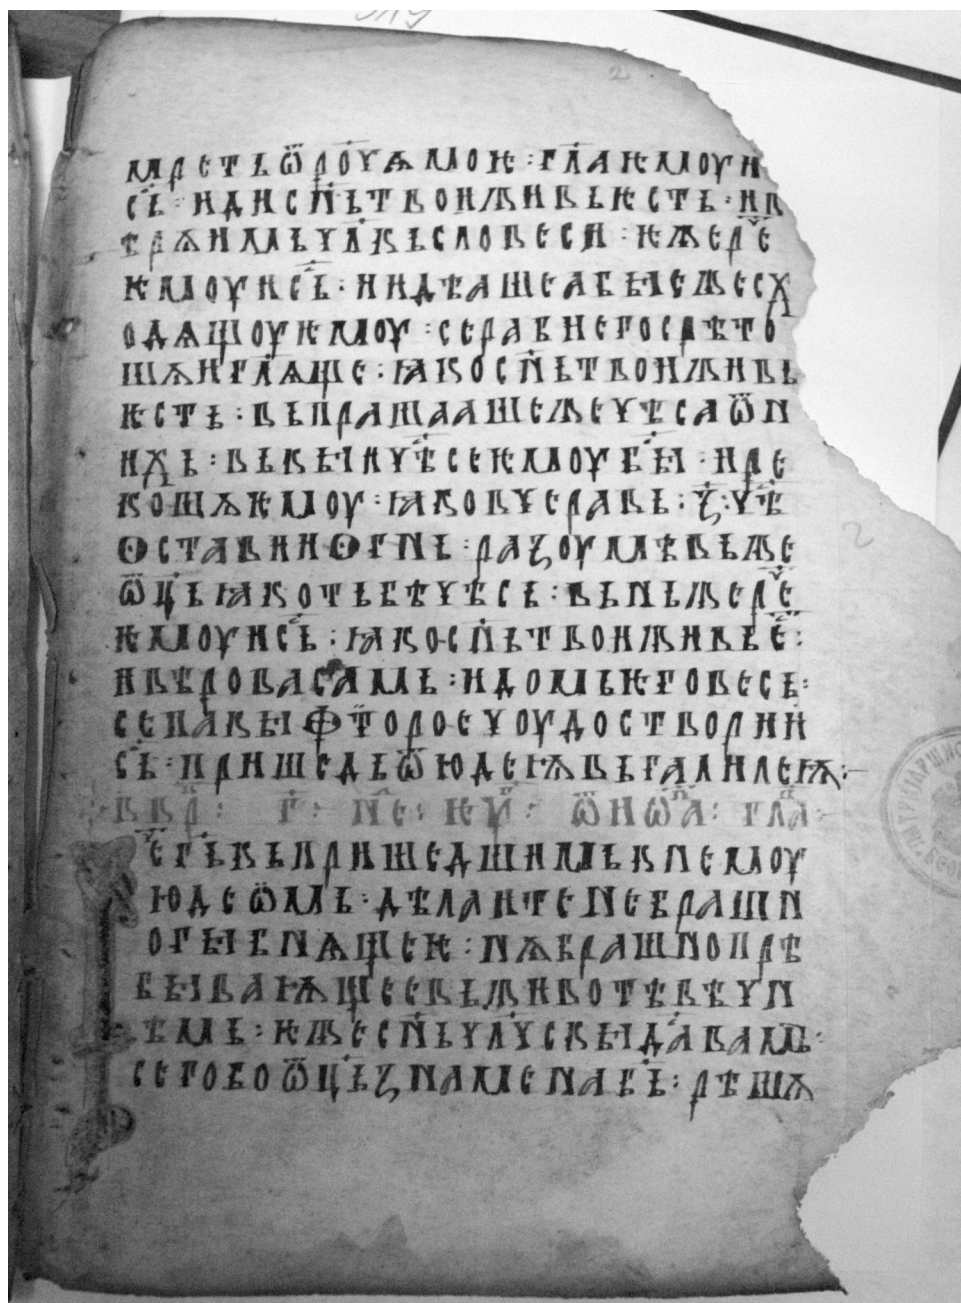 мрєтъѿро́чѧмоѥ · гл҃аѥмоуи
с҃ъ · идисн҃ътвоиживъѥстъ · ив
ѣрѫимъчл҃късловєси · ѥжєрⷱ҇є
ѥмоуис҃ъ · иидѣашєабыєжєсх
одѧщоуѥмоу · сєрабиєгосрѣто
шѫигл҃ѧщє · ꙗкосн҃ътвоиживъ
ѥстъ · въпрашаашєжєчѣсаѿн
ихъ · въкыичⷭ҇ѣсєѥмоубы҃ · ирє
кошѫѥмоу · ꙗковчєравъ · з҃ · чѣ
ѳставииѳгнь · разоумѣвъжє
ѿц҃ъꙗкотъбѣчѣсъ · вьньжєрⷱ҇є
ѥмоуис҃ъ · ꙗкосн҃ътвоиживъє҃ :
ивѣровасамъ · идомъѥговєсъ :
сєпакыфт҃ороєчоудоствории
с҃ъ · пришєдъѿюдєѩвъгалилєѩ :
ввр҃ · г҃ · нє · кѱ҃ · ѿиѡⷩ҇а · гл҃а ·
єг҃ъкъпришєдшиимъкнємоу
юдєѡмъ · дѣлаитєнєбрашн
огыбнѫщєѥ · нѫбрашнопрѣ
бываѭщєєвъживотѣвѣчн
ѣмь · ѥжєсн҃ъчл҃чскыда́вамъ ·
сєгобоѿц҃ъзнамєнаб҃ъ · рѣшѫ